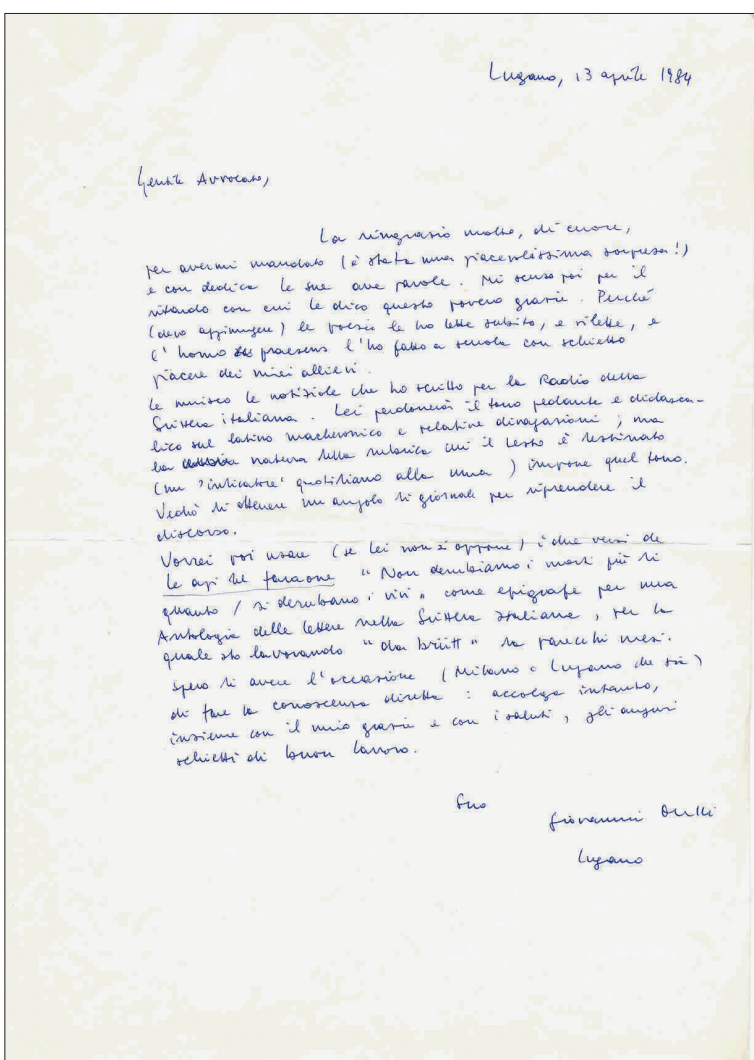 Lugano, 13 aprile 1984
Gentile Avvocato,
La ringrazio molto, di cuore,
per avermi mandato (è stata una piacevolissima sorpresa!)
e con dedica le sue parole. Mi scuso poi per il
ritardo con cui le dico questo povero grazie. Perché
(devo aggiungere) le poesie le ho lette subito, e rilette, e
l'homo praesens l'ho fatto a scuola con schietto
piacere dei miei allievi.
Le unisco le notiziole che ho scritto per la Radio della
Svizzera italiana. Lei perdonerà il tono pedante e didasca-
lico sul latino maccheronico e relative divagazioni; ma
la natura della rubrica cui il testo è destinato
(un 'indicatore' quotidiano alla una) impone quel tono.
Vedrò di ottenere un angolo di giornale per riprendere il
discorso.
Vorrei poi usare (se Lei non si oppone) i due versi de
Le api del faraone "Non derubiamo i morti più di
quanto / si derubano i vivi" come epigrafe per una
Antologia delle lettere nella Svizzera Italiana, per la
quale sto lavorando "da brütt" da parecchi mesi.
Spero di avere l'occasione (Milano o Lugano che sia)
di fare la conoscenza diretta: accolga intanto,
insieme con il mio grazie e con i saluti, gli auguri
schietti di buon lavoro.
Suo
Giovanni Orelli
Lugano